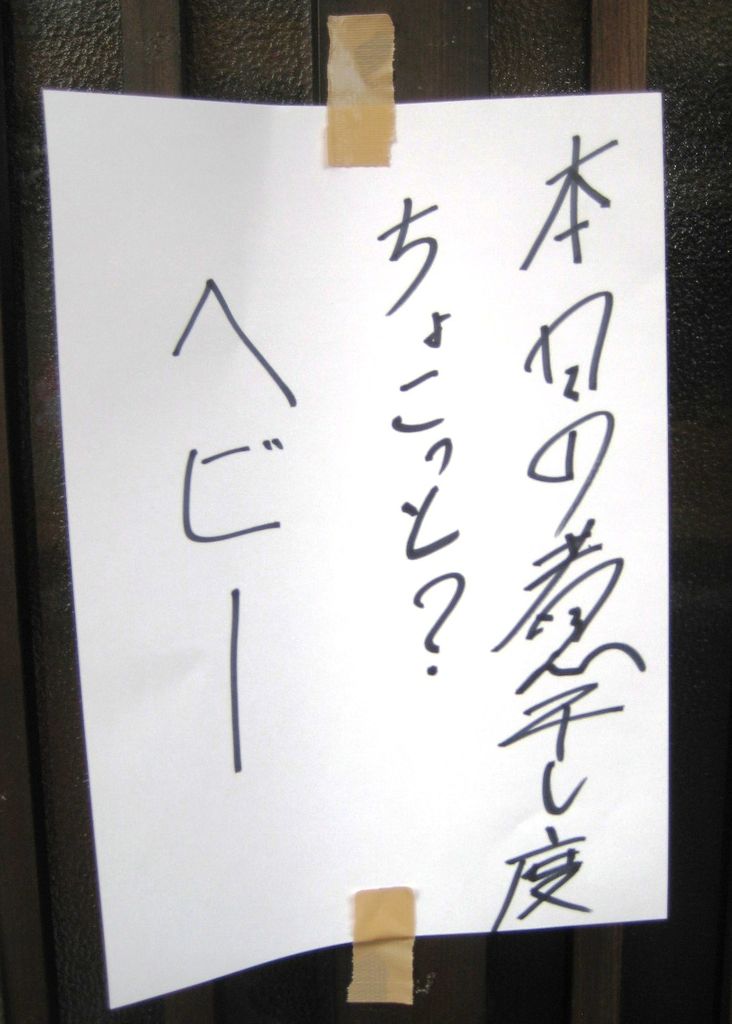 本日の煮干し度
ちょこっと?
ヘビー